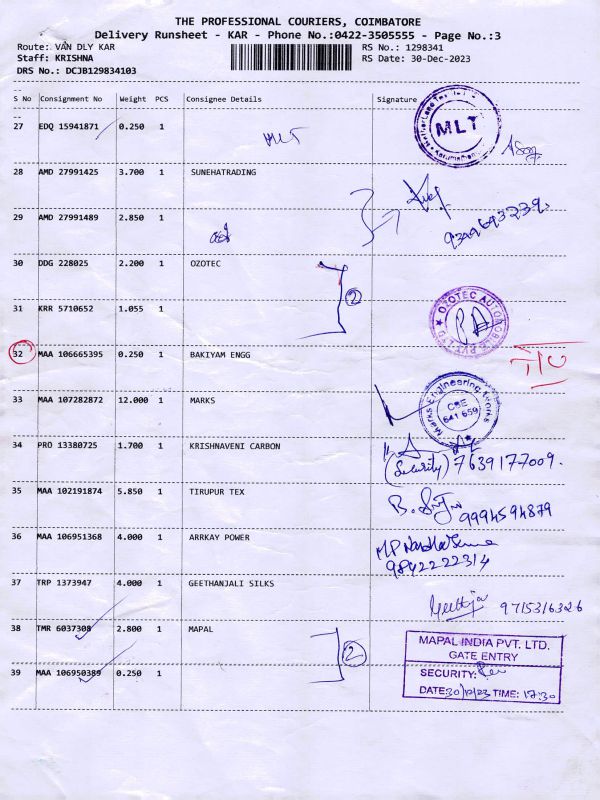 THE PROFESSIONAL COURIERS, COIMBATORE
Delivery Runsheet - KAR - Phone No.:0422-3505555 - Page No.:3
Route: VAN DLY KAR RS No.: 1298341
Staff: KRISHNA RS Date: 30-Dec-2023
DRS No.: DCJB129834103
S No Consignment No Weight PCS Consignee Details Signature
27 EDQ 15941871 0.250 1 MLT MLT
28 AMD 27991425 3.700 1 SUNEHATRADING
29 AMD 27991489 2.850 1
30 DDG 228025 2.200 1 OZOTEC
2
31 KRR 5710652 1.055 1 OZOTEC AUTOMOBILE PVT LTD
32 MAA 106665395 0.250 1 BAKIYAM ENGG
33 MAA 107282872 12.000 1 MARKS Marks Engineering Works CBE 641 659
34 PRO 13380725 1.700 1 KRISHNAVENI CARBON
(Security) 7639177009.
35 MAA 102191874 5.850 1 TIRUPUR TEX
9994594879
36 MAA 106951368 4.000 1 ARRKAY POWER
9842222314
37 TRP 1373947 4.000 1 GEETHANJALI SILKS
9715316326
38 TMR 6037308 2.800 1 MAPAL
2
MAPAL INDIA PVT. LTD.
GATE ENTRY
39 MAA 106950389 0.250 1 SECURITY:
DATE: 30/12/23 TIME: 17:30